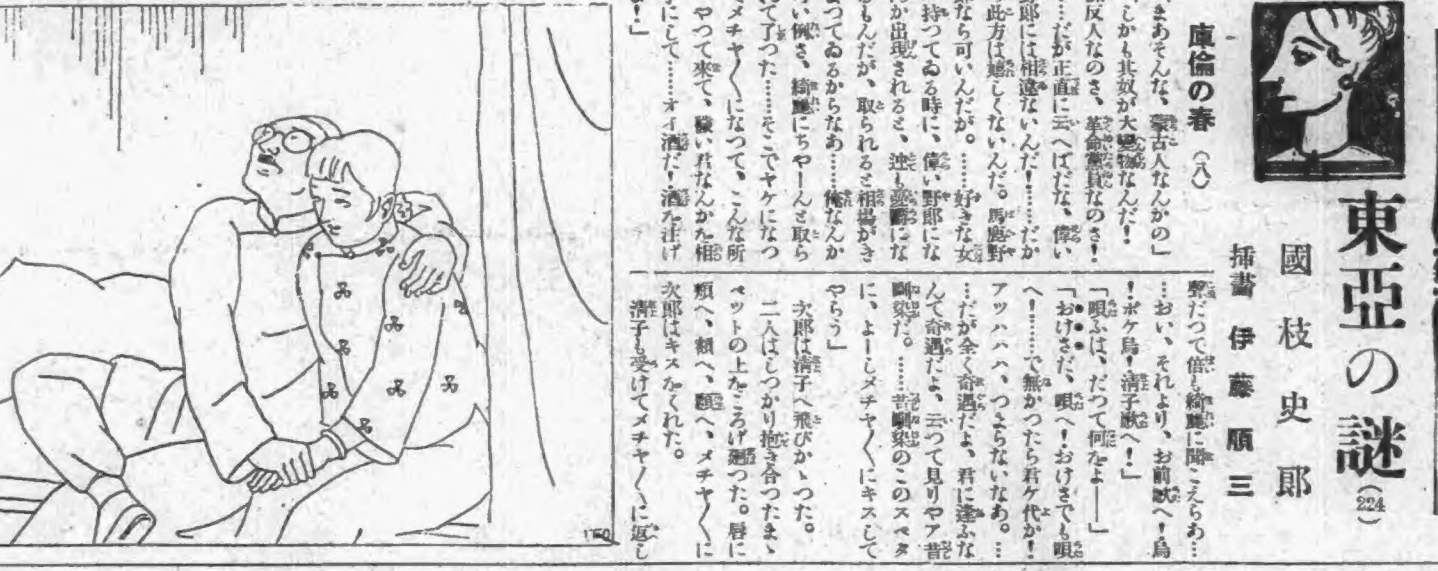 東亞の謎
(224)
國枝史郎
挿畵 伊藤順三
庫倫の春 (八)
まあそんな、蒙古人なんかの」
しかも其奴が大變物なんだ!
反人なのさ、革命黨員なのさ!
…だが正直に云へばだな、偉い
野郎には相違ないんだ!……だか
此方は嬉しくないんだ。馬鹿野
なら可いんだが。……好きな女
持つてゐる時に、偉い野郎にな
か出現されると、逆も憂鬱にな
もんだが、取られると相場がき
まつてゐるからなあ……俺なんか
い例さ、綺麗にちやーんと取ら
れて了つた……そこでヤケになつ
メチヤ〱になつて、こんな所
やつて来て、穢い君なんかを相
手にして……オイ酒だ!酒を注げ
!」
聲だつて倍も綺麗に聞こえらあ…
…おい、それより、お前唄へ!烏
!ボケ烏!清子唄へ!」
「唄ふは、だつて何をよ――」
「おけさだ、唄へ!おけさでも唄
へ!……で無かつたら君ケ代か!
アツハハハ、つまらないなあ。…
…だが全く奇遇だよ、君に逢ふな
んて奇遇だよ、云つて見りやア昔
馴染だ。……昔馴染のこのスベタ
に、よーしメチヤ〱にキスして
やらう」
次郎は清子へ飛びかゝつた。
二人はしつかり抱き合つたまゝ
ベツトの上をころげ廻つた。唇に
頬へ、額へ、頤へ、メチヤ〱に
次郎はキスをくれた。
清子も受けてメチヤ〱に返し
ITO